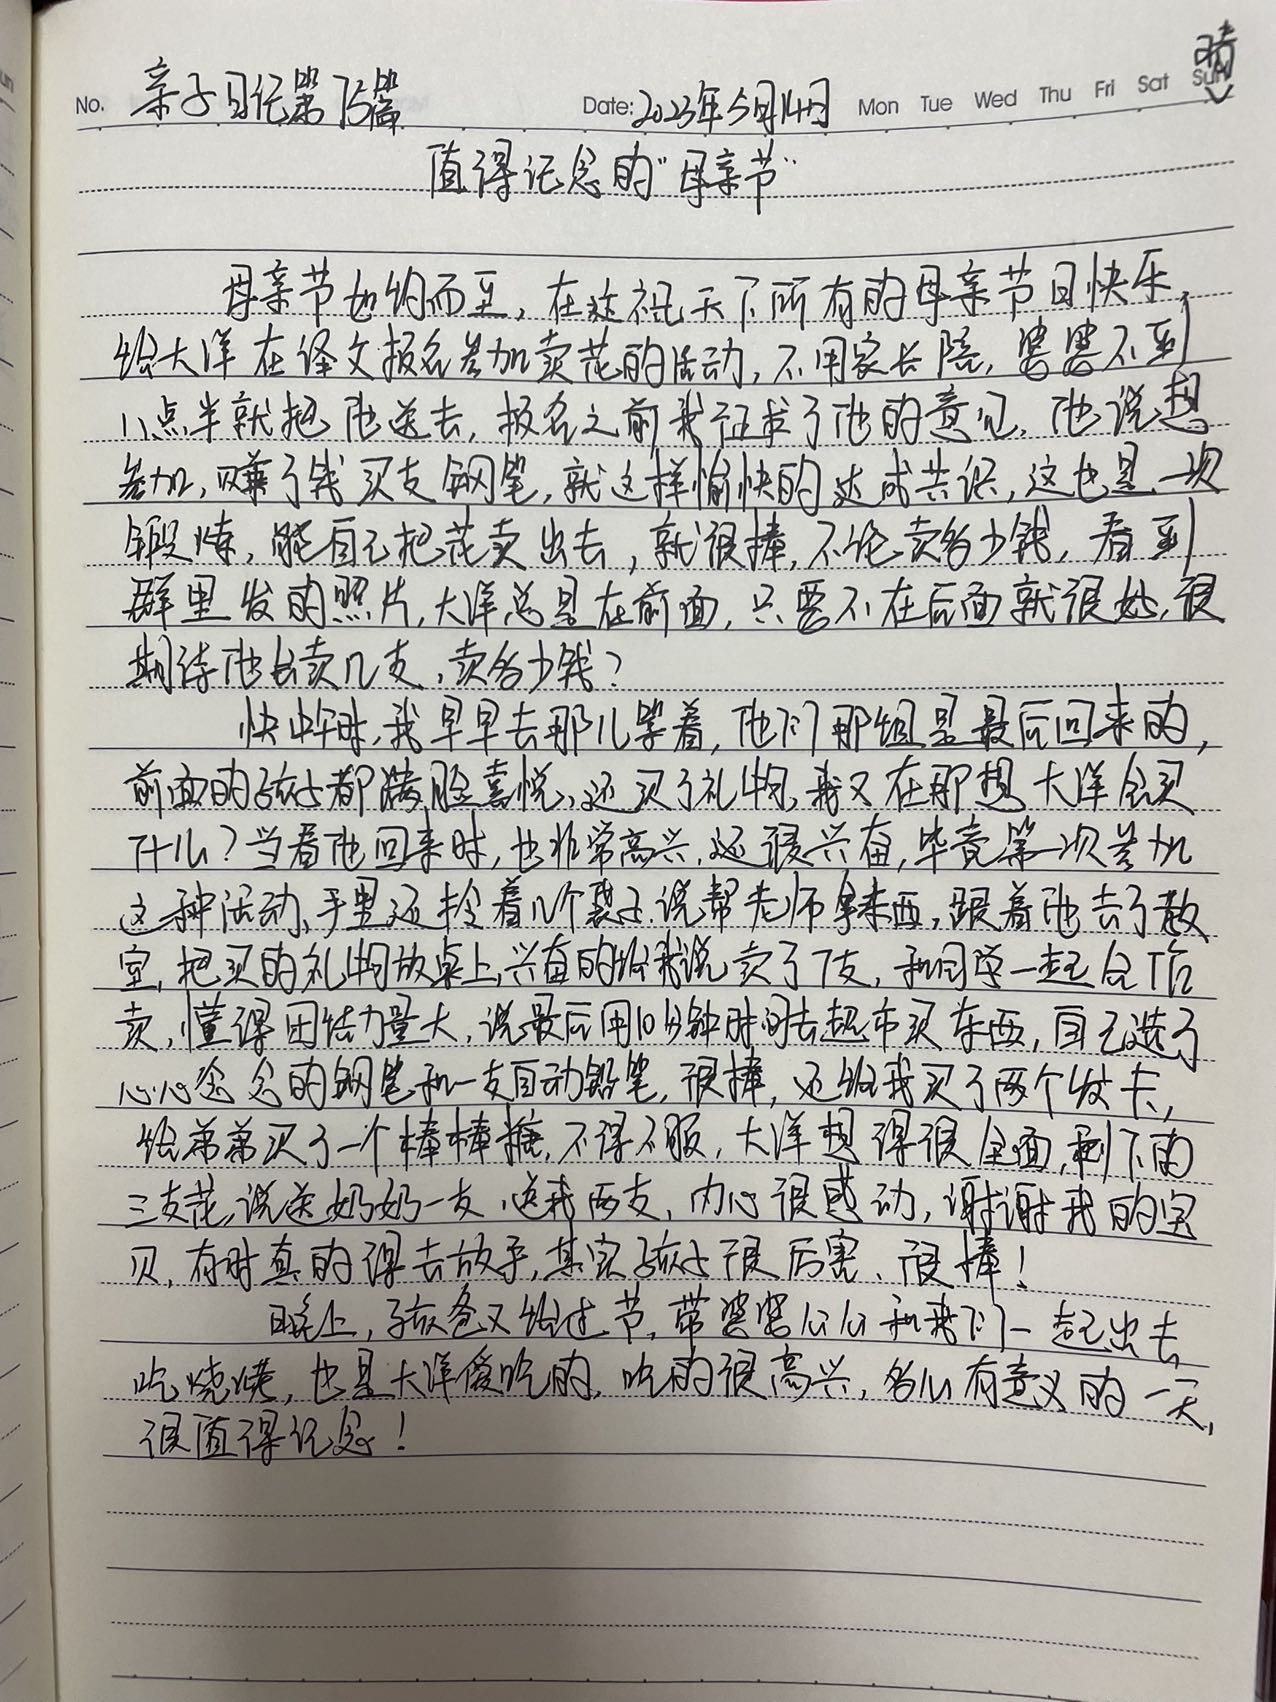 No. 亲子日记第75篇 Date: 2023年5月14日 Mon Tue Wed Thu Fri Sat Sun 晴
值得记念的"母亲节"
母亲节如约而至，在这祝天下所有的母亲节日快乐，
给大洋在译文报名参加卖花的活动，不用家长陪，婆婆不到
八点半就把他送去，报名之前我征求了他的意见，他说想
参加，赚了钱买支钢笔，就这样愉快的达成共识，这也是一次
锻炼，能自己把花卖出去，就很棒，不论卖多少钱，看到
群里发的照片，大洋总是在前面，只要不在后面就很好，很
期待他会卖几支，卖多少钱？
快中午时，我早早去那儿等着，他们那组是最后回来的，
前面的孩子都满脸喜悦，还买了礼物，我又在那想大洋会买
什么？当看他回来时，也非常高兴，还很兴奋，毕竟第一次参加
这种活动，手里还拎着几个袋子，说帮老师拿东西，跟着他去了教
室，把买的礼物放桌上，兴奋的给我说卖了7支，和同学一起合作
卖，懂得团结力量大，说最后用10分钟时间去超市买东西，自己选了
心心念念的钢笔和一支自动铅笔，很棒，还给我买了两个发卡，
给弟弟买了一个棒棒糖，不得不服，大洋想得很全面，剩下的
三支花，说送奶奶一支，送我两支，内心很感动，谢谢我的宝
贝，有时真的得去放手，其实孩子很厉害、很棒！
晚上，孩爸又给过节，带婆婆公公和我们一起出去
吃烧烤，也是大洋爱吃的，吃的很高兴，多么有意义的一天，
很值得记念！